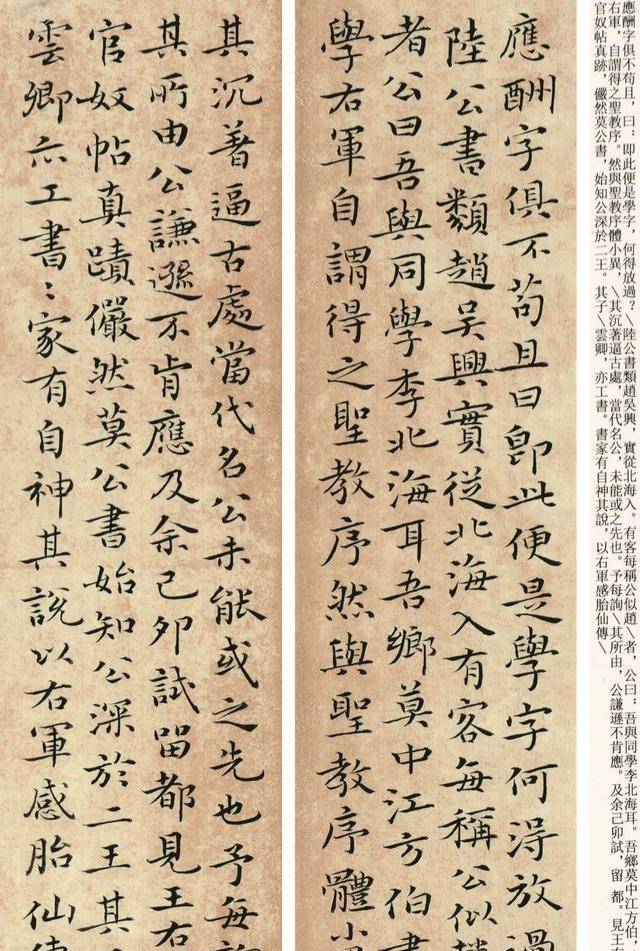 應酬字俱不苟且，曰：即此便是學字，何得放過？\陸公書類趙吳興，實從北海入。有客每稱公似趙\者，公曰：吾與同學李北海耳。吾鄉莫中江方伯，
右軍，自謂得之聖教序。然與聖教序體小異，\其沉著逼古處，當代名公，未能或之先也。予每詢\其所由，公謙遜不肯應。及余己卯試，留 都。見王
官奴帖真跡，儼然莫公書，始知公深於二王。其子\雲卿，亦工書。書家有自神其說，以右軍感胎仙傳\
應酬字俱不苟且曰即此便是學字何得放過
陸公書類趙吳興實從北海入有客每稱公似趙
者公曰吾與同學李北海耳吾鄉莫中江方伯書
學右軍自謂得之聖教序然與聖教序體小異
其沉著逼古處當代名公未能或之先也予每詢
其所由公謙遜不肯應及余己卯試留都見王右
官奴帖真蹟儼然莫公書始知公深於二王其
雲卿亦工書〻家有自神其說以右軍感胎仙傳